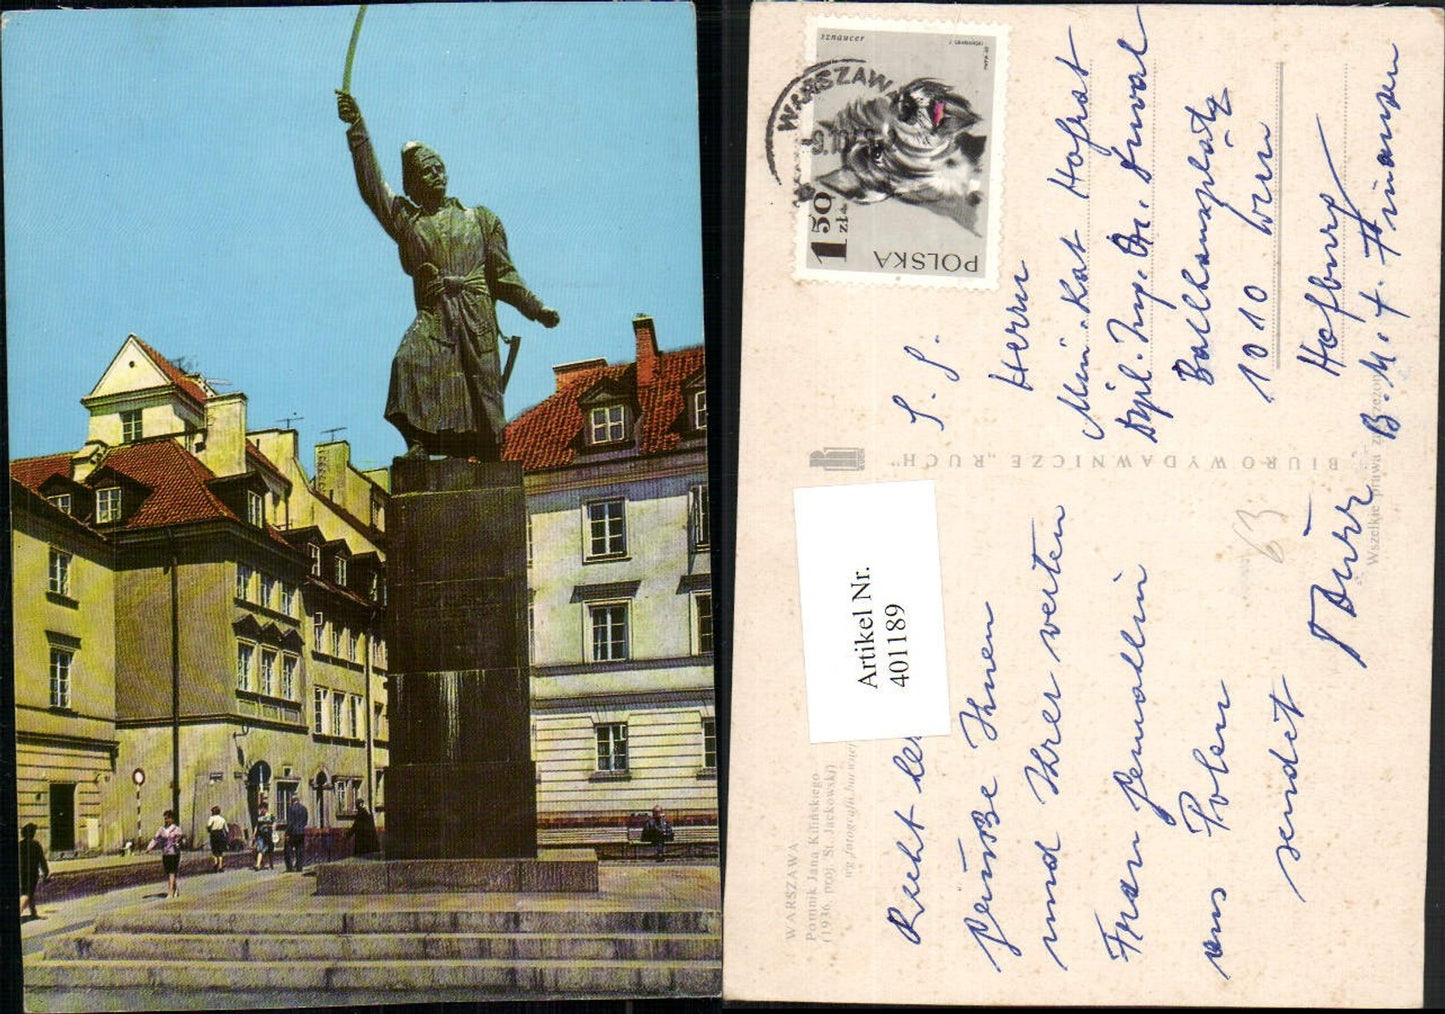 sznaucer
WARSZAWA
1 50 zł
POLSKA
BIURO WYDAWNICZE „RUCH”
Wszelkie prawa
Artikel Nr.
401189
WARSZAWA
Pomnik Jana Kilińskiego
(1936, proj. St. Jackowski)
wg fotografii barwnej
S. S.
Herrn
Min. Rat Hofrat
Dipl. Ing. Dr.
Ballhausplatz
1010 Wien
Hofburg
B. M. f. Finanzen
63
Recht
Grüße Ihnen
und Ihrer werten
Frau Gemahlin
aus Polen
sendet